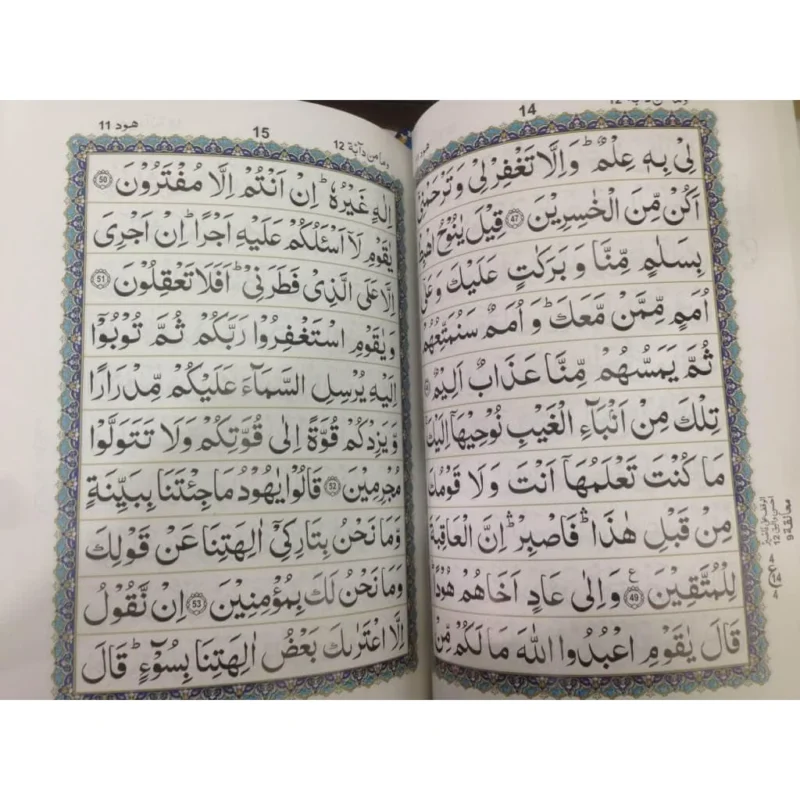 14
لِىۡ بِهٖ عِلۡمٌ ؕ وَاِلَّا تَغۡفِرۡ لِىۡ وَتَرۡحَمۡنِىۡۤ
اَكُنۡ مِّنَ الۡخٰسِرِيۡنَ 47 قِيۡلَ يٰنُوۡحُ اهۡبِطۡ
بِسَلٰمٍ مِّنَّا وَ بَرَكٰتٍ عَلَيۡكَ وَعَلٰٓى
اُمَمٍ مِّمَّنۡ مَّعَكَ ؕ وَ اُمَمٌ سَنُمَتِّعُهُمۡ
ثُمَّ يَمَسُّهُمۡ مِّنَّا عَذَابٌ اَلِيۡمٌ
تِلۡكَ مِنۡ اَنۡۢبَآءِ الۡغَيۡبِ نُوۡحِيۡهَاۤ اِلَيۡكَ
مَا كُنۡتَ تَعۡلَمُهَاۤ اَنۡتَ وَلَا قَوۡمُكَ
مِنۡ قَبۡلِ هٰذَا ۛؕ فَاصۡبِرۡ ۛؕ اِنَّ الۡعَاقِبَةَ
لِلۡمُتَّقِيۡنَ 49 ع وَ اِلٰى عَادٍ اَخَاهُمۡ هُوۡدًا ؕ
قَالَ يٰقَوۡمِ اعۡبُدُوا اللّٰهَ مَا لَكُمۡ مِّنۡ
معانقة 9
هود 11
15
ومامن دآبة 12
اِلٰهٍ غَيۡرُهٗ ؕ اِنۡ اَنۡتُمۡ اِلَّا مُفۡتَرُوۡنَ 50
يٰقَوۡمِ لَاۤ اَسۡئَلُكُمۡ عَلَيۡهِ اَجۡرًا ؕ اِنۡ اَجۡرِىَ
اِلَّا عَلَى الَّذِىۡ فَطَرَنِىۡ ؕ اَفَلَا تَعۡقِلُوۡنَ 51
وَ يٰقَوۡمِ اسۡتَغۡفِرُوۡا رَبَّكُمۡ ثُمَّ تُوۡبُوۡۤا
اِلَيۡهِ يُرۡسِلِ السَّمَآءَ عَلَيۡكُمۡ مِّدۡرَارًا
وَّ يَزِدۡكُمۡ قُوَّةً اِلٰى قُوَّتِكُمۡ وَلَا تَتَوَلَّوۡا
مُجۡرِمِيۡنَ 52 قَالُوۡا يٰهُوۡدُ مَا جِئۡتَنَا بِبَيِّنَةٍ
وَّمَا نَحۡنُ بِتَارِكِىۡۤ اٰلِهَتِنَا عَنۡ قَوۡلِكَ
وَمَا نَحۡنُ لَكَ بِمُؤۡمِنِيۡنَ 53 اِنۡ نَّقُوۡلُ
اِلَّا اعۡتَرٰٮكَ بَعۡضُ اٰلِهَتِنَا بِسُوۡٓءٍ ؕ قَالَ